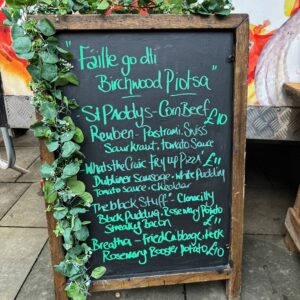 "Fáille go dtí
Birchwood Piotsa"
- St Paddys - Corn Beef £10
Reuben - Pastrami, Swiss
Saurkraut, tomato Sauce
- Whats the Craic Fry up Pizza £11
Dubliner Sausage - White Pudding
Tomato Sauce - cheddar
The black Stuff - Clonakilly
Black Pudding, Rosemary Potato
Streaky Bacon £11
Breatha - Fried Cabbage
Rosemary Rooster potato £10